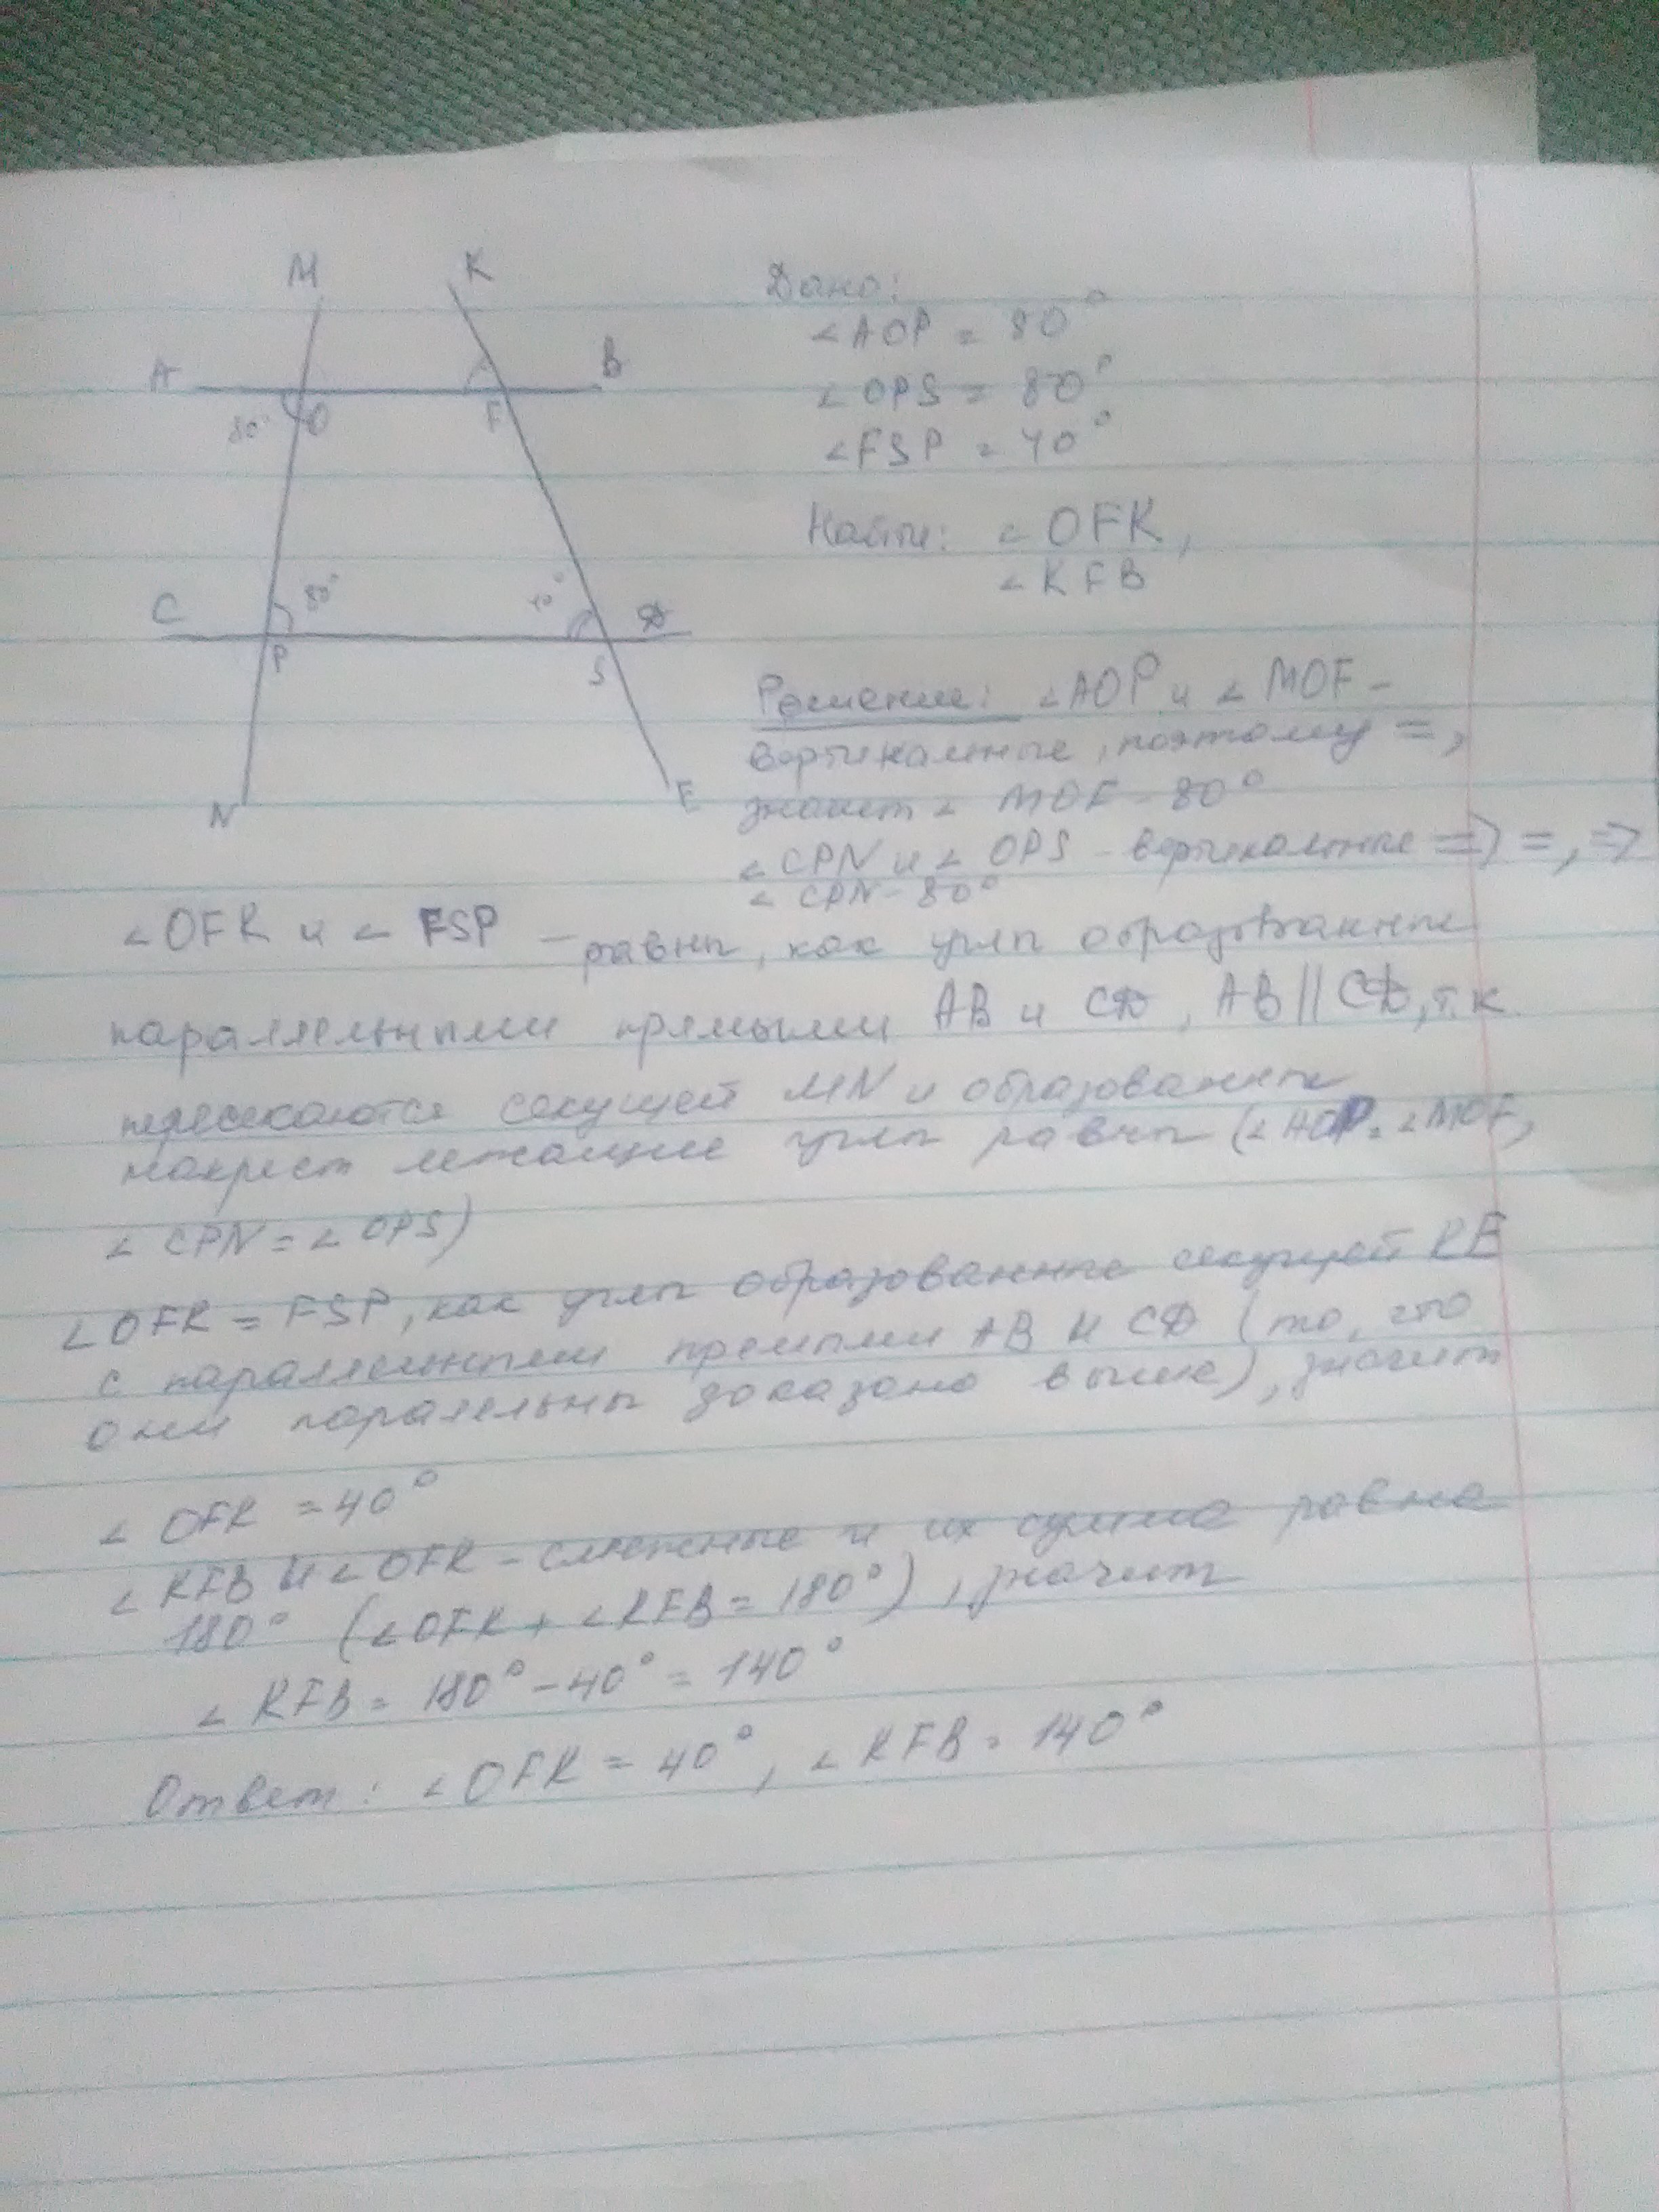 M
K
A
B
80°
O
F
C
80°
40°
D
P
S
N
E
Дано:
∠AOP = 80°
∠OPS = 80°
∠FSP = 40°
Найти: ∠OFK,
∠KFB
Решение: ∠AOP и ∠MOF –
вертикальные, поэтому =,
значит ∠ MOF – 80°
∠CPN и ∠ OPS – вертикальные => =, =>
∠ CPN – 80°
∠OFK и ∠ FSP – равны, как углы образованные
параллельными прямыми AB и CD, AB || CD, т.к
пересекаются секущей MN и образованные
накрест лежащие углы равны (∠AOP = ∠MOF,
∠ CPN = ∠ OPS)
∠OFK = FSP, как углы образованные секущей KE
с параллельными прямыми AB и CD (то, что
они паралельны доказано выше), значит
∠ OFK = 40°
∠ KFB и ∠ OFK – смежные и их сумма равна
180° (∠OFK + ∠KFB = 180°), значит
∠ KFB = 180° – 40° = 140°
Ответ: ∠OFK = 40°, ∠KFB = 140°